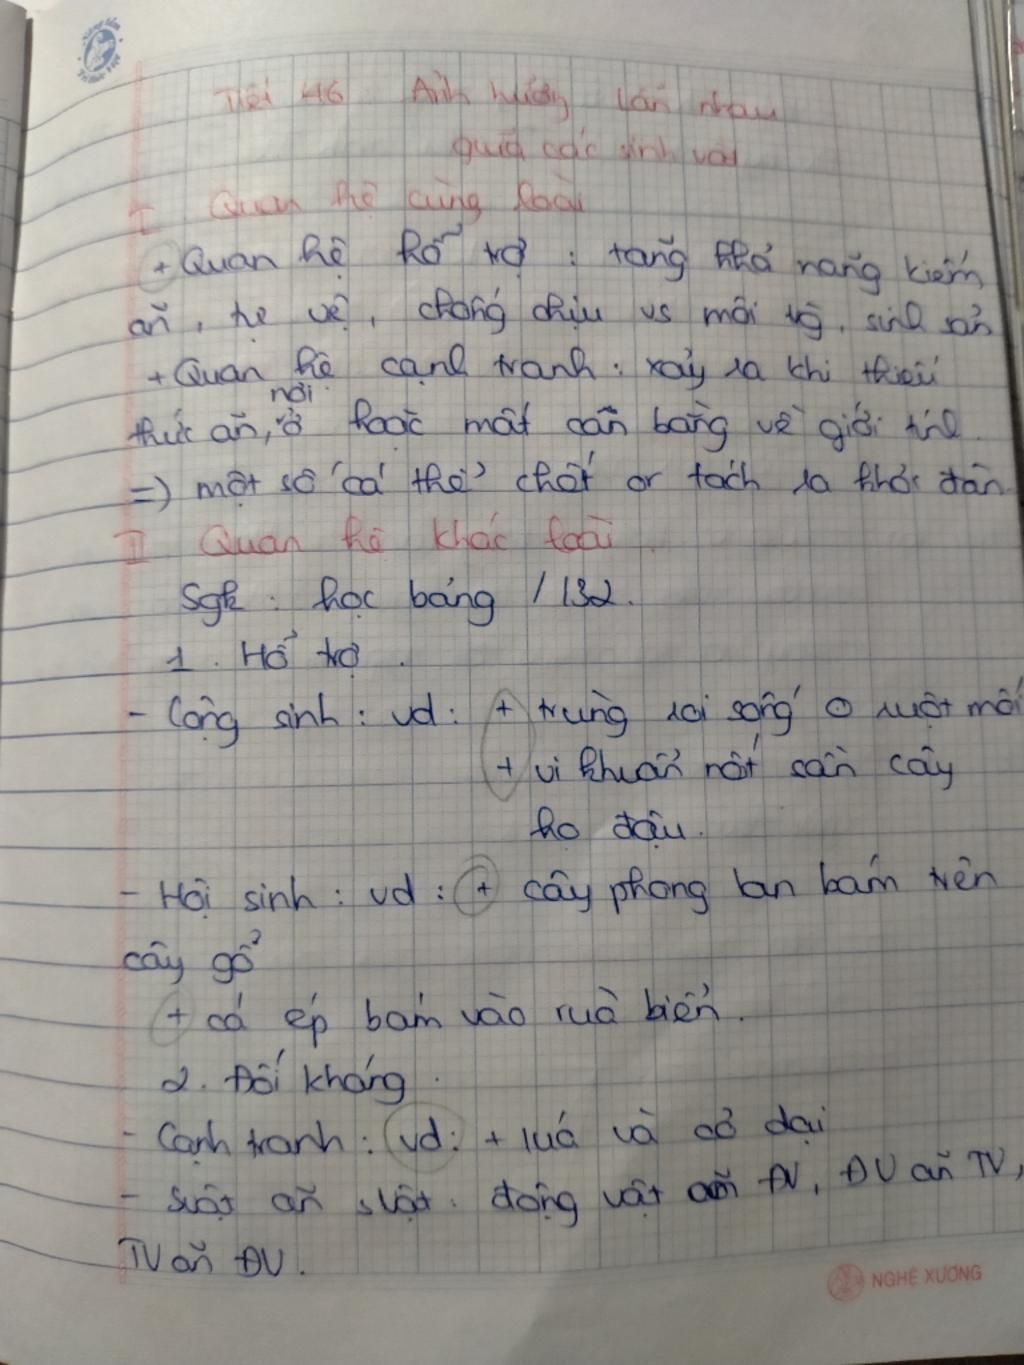 Tiết 46 Ảnh hưởng lẫn nhau
giữa các sinh vật
I Quan hệ cùng loài
+ Quan hệ hỗ trợ : tăng khả năng kiếm
ăn, tự vệ, chống chịu vs môi trg, sinh sản
+ Quan hệ cạnh tranh : xảy ra khi thiếu
nơi
thức ăn, ở hoặc mất cân bằng về giới tính.
=> một số cá thể chết or tách ra khỏi đàn
II Quan hệ khác loài.
Sgk : học bảng / 132.
1. Hổ trợ.
- Cộng sinh : vd : + trùng roi sống ở ruột mối
+ vi khuẩn nốt sần cây
họ đậu.
- Hội sinh : vd : + cây phong lan bám trên
cây gổ
+ cá ép bám vào rùa biển.
2. Đối kháng.
- Cạnh tranh : vd : + lúa và cỏ dại
- svật ăn svật : động vật ăn ĐV, ĐV ăn TV,
TV ăn ĐV.
NGHỆ XƯƠNG